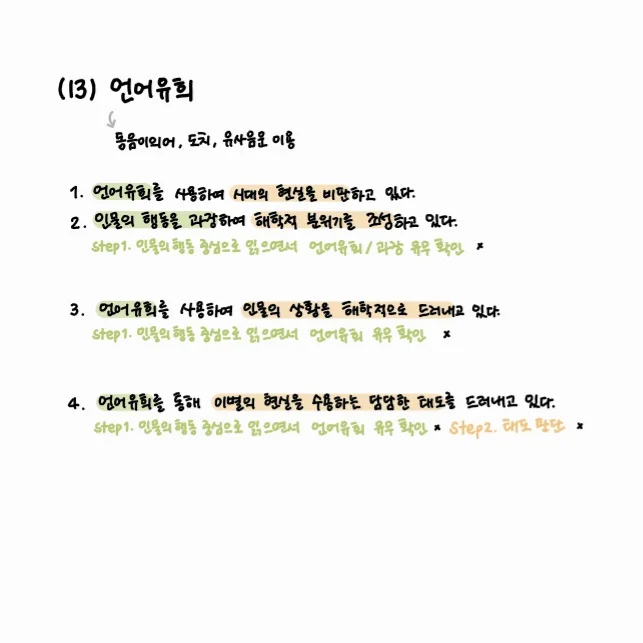 (13) 언어유희
동음이의어, 도치, 유사음운 이용
1. 언어유희를 사용하여 시대의 현실을 비판하고 있다.
2. 인물의 행동을 과장하여 해학적 분위기를 조성하고 있다.
Step1. 인물의 행동 중심으로 읽으면서 언어유희/과장 유무 확인 x
3. 언어유희를 사용하여 인물의 상황을 해학적으로 드러내고 있다.
Step1. 인물의 행동 중심으로 읽으면서 언어유희 유무 확인 x
4. 언어유희를 통해 이별의 현실을 수용하는 담담한 태도를 드러내고 있다.
Step1. 인물의 행동 중심으로 읽으면서 언어유희 유무 확인 x Step2. 태도 판단 x